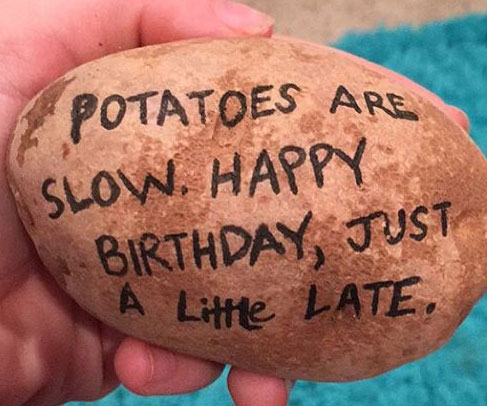 POTATOES ARE
SLOW. HAPPY
BIRTHDAY, JUST
A Little LATE.